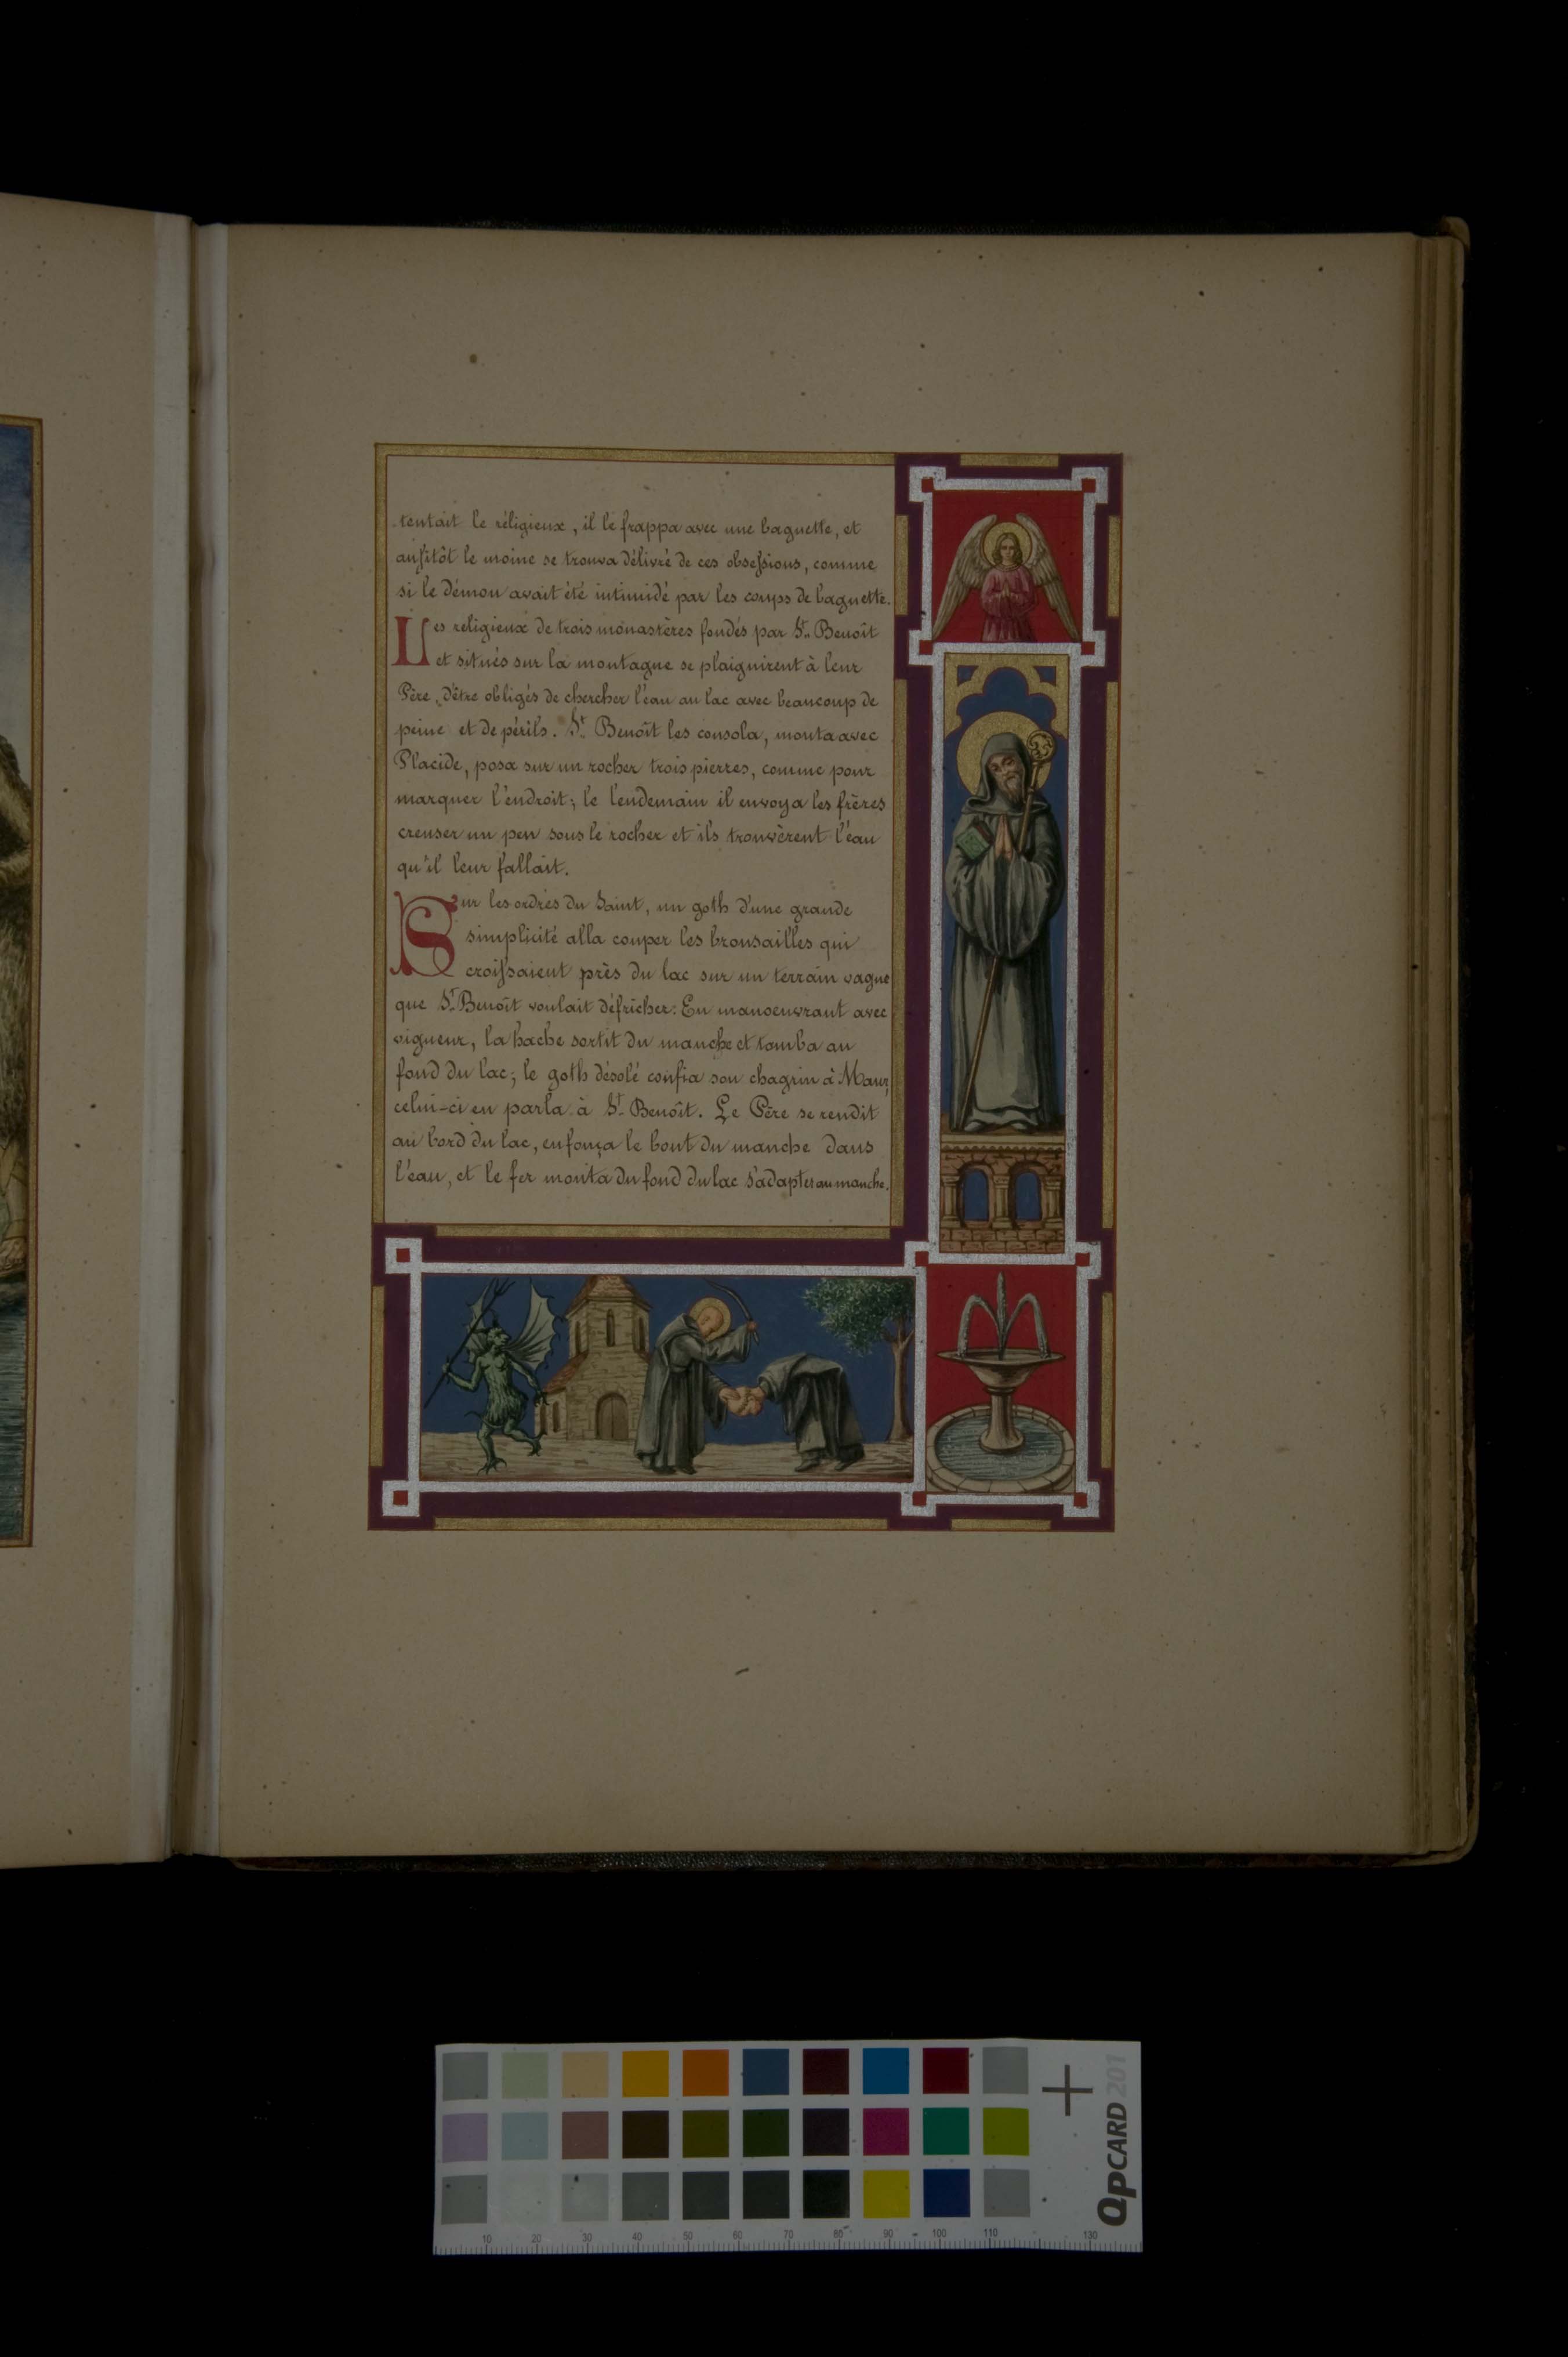 tentait le réligieux, il le frappa avec une baguette, et
aussitôt le moine se trouva délivré de ces obsessions, comme
si le démon avait été intimidé par les coups de baguette.
Les religieux de trois monastères fondés par St. Benoît
et situés sur la montagne se plaignirent à leur
Père, d'être obligés de chercher l'eau au lac avec beaucoup de
peine et de périls. St. Benoît les consola, monta avec
Placide, posa sur un rocher trois pierres, comme pour
marquer l'endroit; le lendemain il envoya les frères
creuser un peu sous le rocher et ils trouvèrent l'eau
qu'il leur fallait.
Sur les ordres du Saint, un goth d'une grande
simplicité alla couper les brousailles qui
croissaient près du lac sur un terrain vague
que St. Benoît voulait défricher. En manoeuvrant avec
vigueur, la hache sortit du manche et tomba au
fond du lac; le goth désolé confia son chagrin à Maur,
celui-ci en parla à St. Benoît. Le Père se rendit
au bord du lac, enfonça le bout du manche dans
l'eau, et le fer monta du fond du lac s'adapter au manche.
QPCARD 201
10 20 30 40 50 60 70 80 90 100 110 130